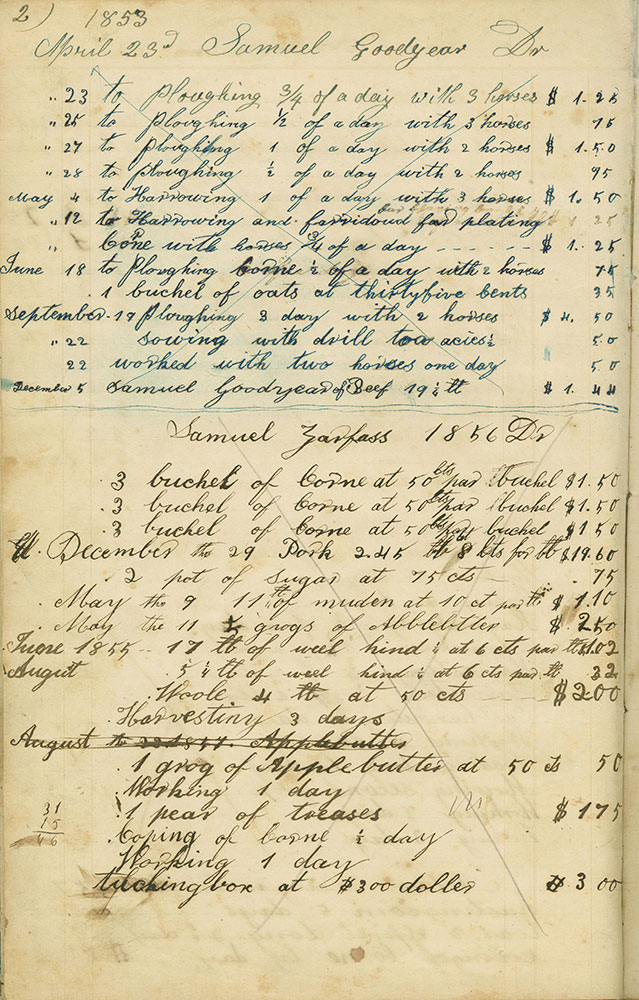 2) 1853
April 23d Samuel Goodyear Dr
" 23 to ploughing 3/4 of a day with 3 horses $ 1.25
" 25 to ploughing 1/2 of a day with 3 horses 75
" 27 to ploughing 1 of a day with 2 horses $ 1.50
" 28 to ploughing 1/2 of a day with 2 horses 95
May 4 to Harrowing 1 of a day with 3 horses $ 1.50
" 12 to Harrowing and farridoud far plating 25
" Corne with horses 3/4 of a day $ 1.25
June 18 to Ploughing Corne 1/2 of a day with 2 horses 75
1 buchel of oats at thirtyfive Cents 35
September 17 Ploughing 3 day with 2 horses $ 4.50
" 22 sowing with drill toa acies 1/2 50
22 worked with two horses one day 50
December 5 Samuel Goodyear of Beef 19 1/2 tt $ 1.44
Samuel Zarfass 1856 Dr
3 buchel of Corne at 50 cts par buchel $1.50
3 buchel of Corne at 50 cts par buchel $1.50
3 buchel of Corne at 50 cts par buchel $1 50
December the 29 Pork 245 tt 8 cts for tt $19.60
2 pot of sugar at 75 cts 75
May the 9 11 tt of muden at 10 ct par tt $ 1.10
May the 11 5 grogs of Abblebtter $ 250
June 1855 17 tt of weel hind 1/4 at 6 cts par tt $1.02
Augut 5 1/4 tt of weel hind 1/4 at 6 cts par tt 32
Woole 4 tt at 50 cts $200
Harvestiny 3 days
August the 22 1857. Applebutter
1 grog of Applebutter at 50 cts 50
Working 1 day
31 1 pear of treases $ 175
15 Coping of Corne 1/2 day
46 Working 1 day
tuchingbox at $300 doller $ 3 00